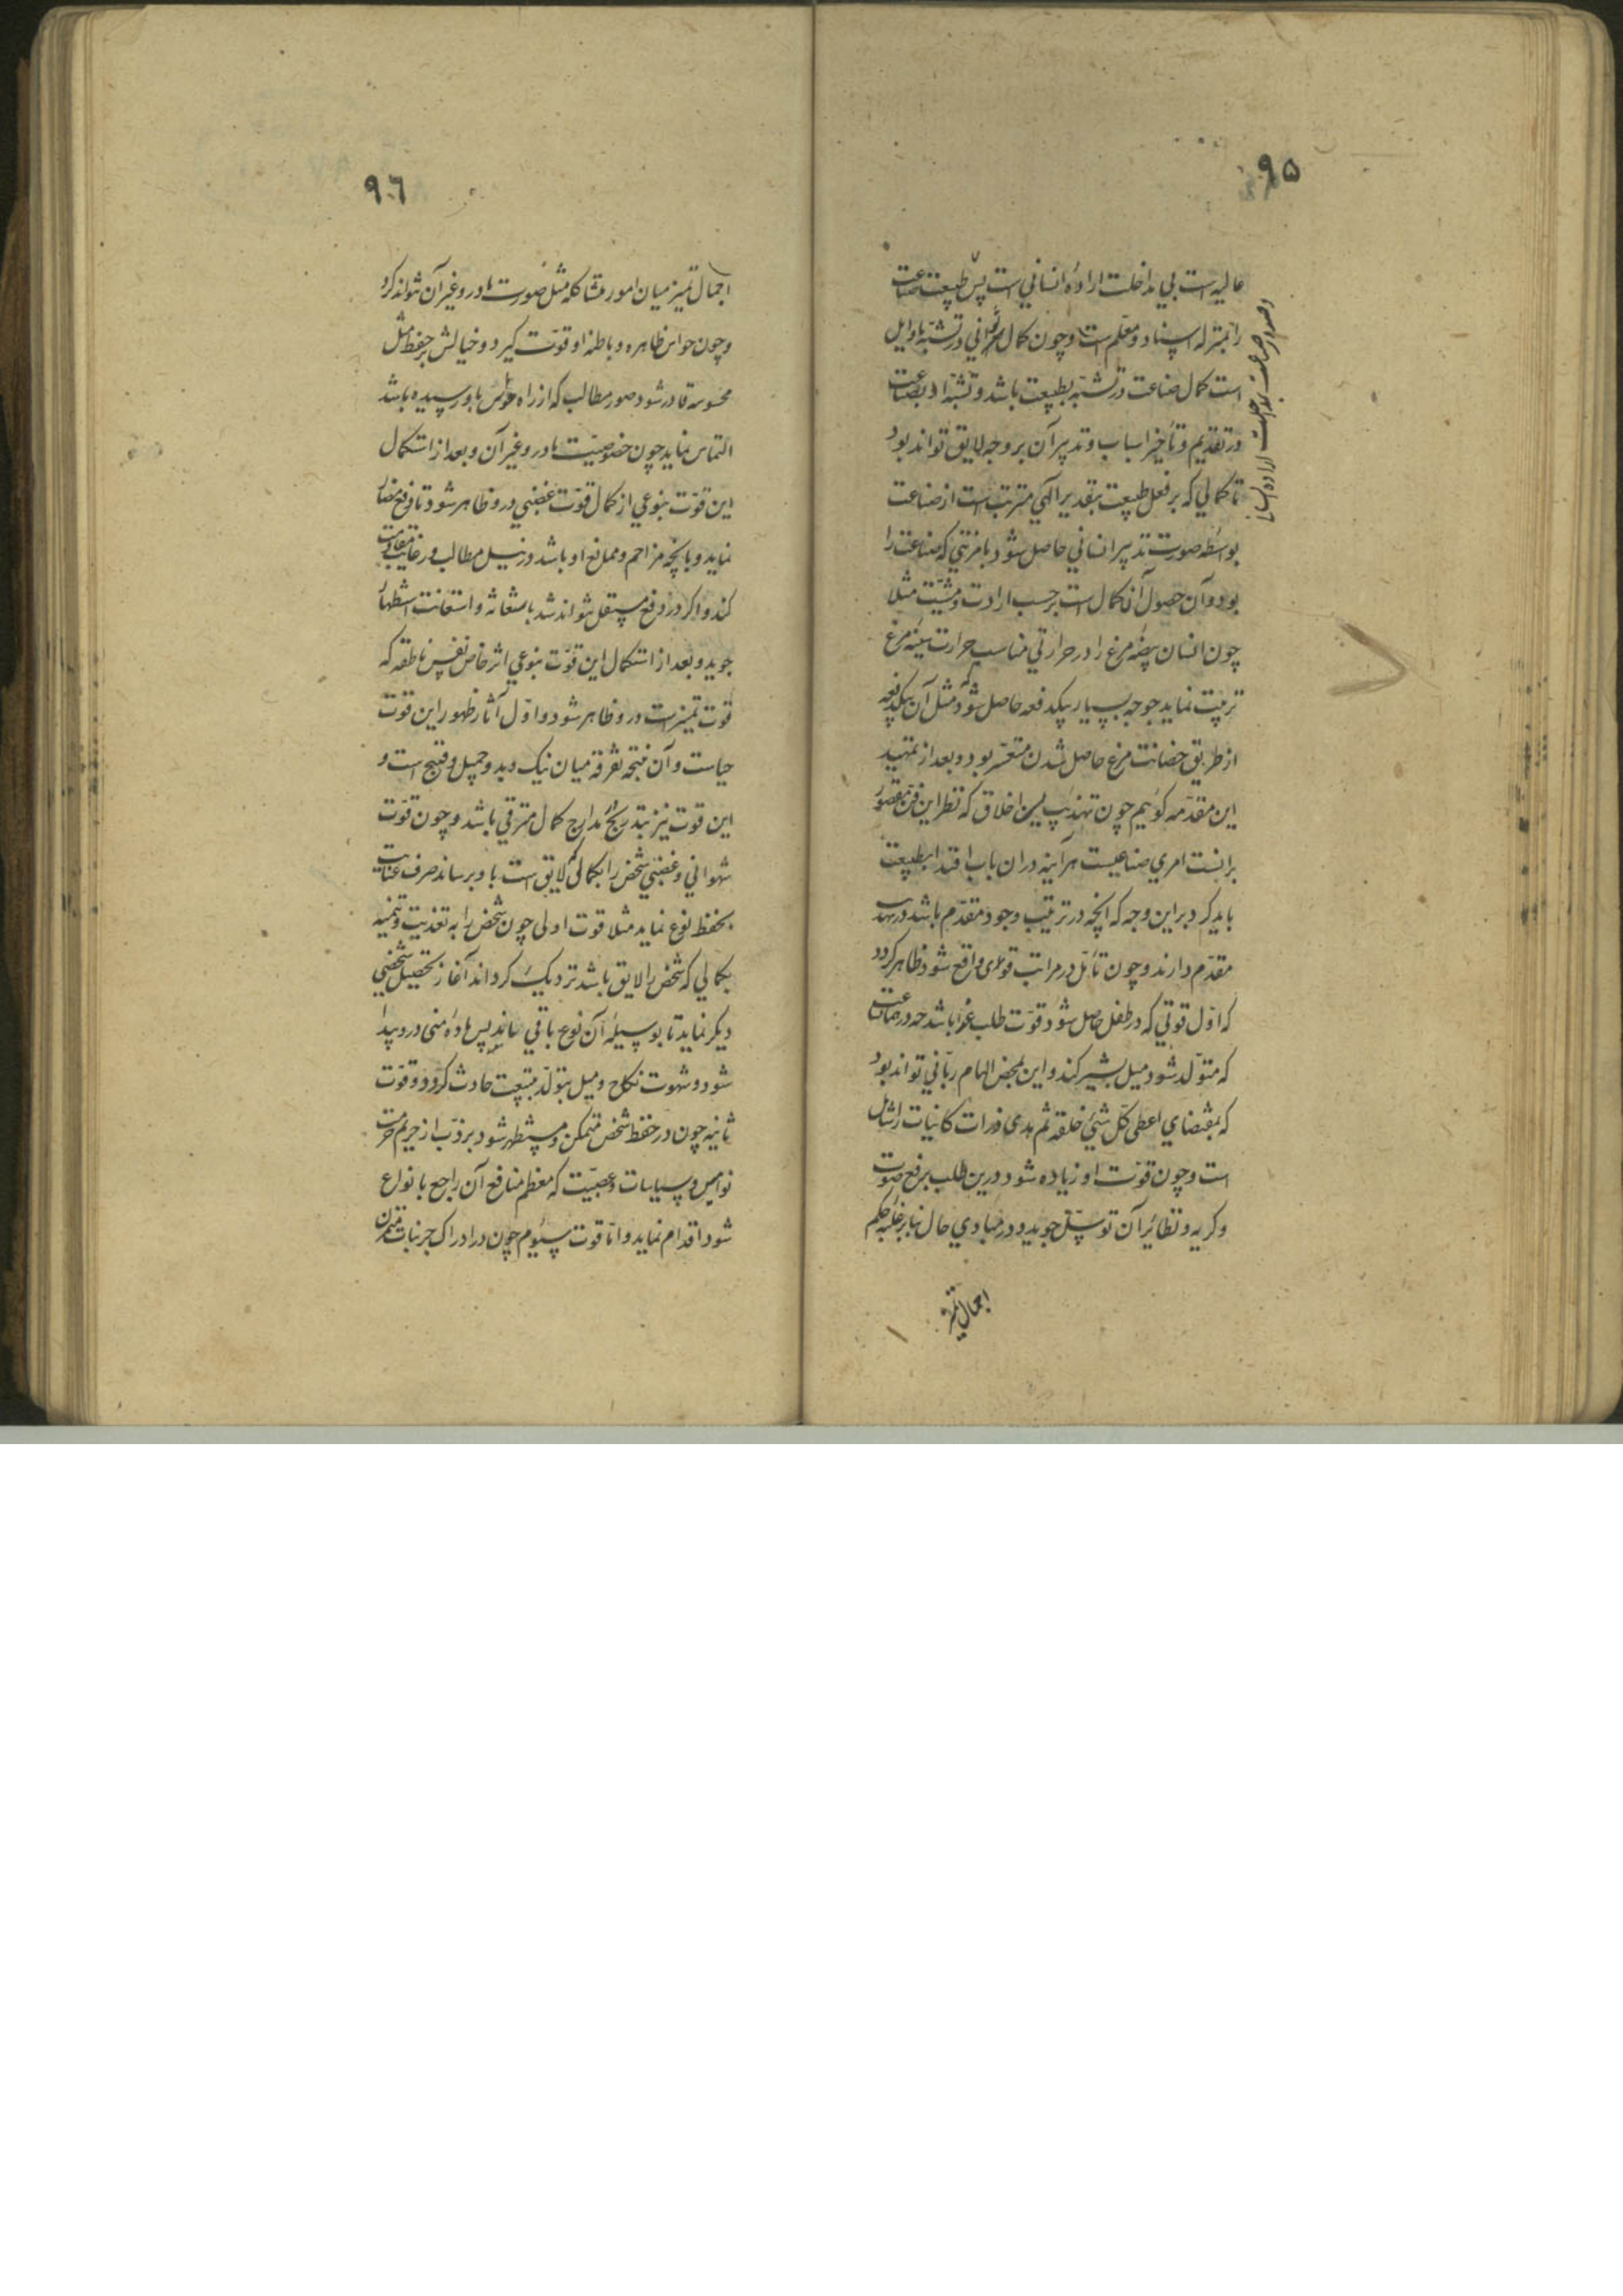 ٩٥
عالیه است بی مداخلت ارادهٔ انسانی است پس طبیعت صناعت
را بمنزله استاد و معلم است و چون کمال هر ثوانی در تشبه باوایل
است کمال صناعت در تشبه بطبیعت باشد و تشبه او بطبیعت
در تقدیم و تأخیر اسباب و تدبیر آن بر وجه لایق تواند بود
تا کمالی که بر فعل طبیعت بتقدیر الهی مترتب است از صناعت
بواسطه صورت تدبیر انسانی حاصل شود با مزیتی که صناعت را
بود و آن حصول آن کمال است بر حسب ارادت و مشیت مثلا
چون انسان بیضهٔ مرغ را در حرارتی مناسب حرارت سینهٔ مرغ
تربیت نماید جوجه بسیار بیکدفعه حاصل شود که مثل آن بیکدفعه
از طریق حضانت مرغ حاصل شدن متعسر بود و بعد از تمهید
این مقدمه کوئیم چون تهذیب اخلاق که نظر این فن مقصور
برانست امری صناعیست هر آینه در ان باب اقتدا بطبیعت
باید کرد براین وجه که انچه در ترتیب وجود مقدم باشد در تهذیب
مقدم دارند و چون تأمل در مراتب قوی واقع شود ظاهر کردد
که اول قوتی که در طفل حاصل شود قوت طلب غذا باشد چه در ساعت
که متولد شود میل بشیر کند و این بمحض الهام ربانی تواند بود
که بمقتضای اعطی کل شیئ خلقه ثم هدی ذرات کائنات را شامل
است و چون قوت او زیاده شود درین طلب برفع صوت
و کریه و نظائر آن توسل جوید و در مبادی حال بنابر غلبه حکم
اجمال تمیز
و صدور صناعت بمداخلت ارادهٔ انسانی
٩٦
اجمال تمیز میان امور متشاکله مثل صورت مادر و غیر آن نتواند کرد
و چون حواس ظاهره و باطنه او قوت کیرد و خیالش بر حفظ مثل
محسوسه قادر شود صور مطالب که از راه حواس باو رسیده باشد
التماس نماید چون خصوصیت مادر و غیر آن و بعد از استکمال
این قوت بنوعی از کمال قوت غضبی درو ظاهر شود تا دفع مضار
نماید و با انچه مزاحم و ممانع او باشد در نیل مطالب و رغایب مقاومت
کند و اکر در دفع مستقل نتواند شد باستغاثه و استعانت استظهار
جوید و بعد از استکمال این قوت بنوعی اثر خاص نفس ناطقه که
قوت تمیزست درو ظاهر شود و اول آثار ظهور این قوت
حیاست و آن نتیجه تفرقه میان نیک و بد و جمیل و قبیح است و
این قوت نیز بتدریج در مدارج کمال مترقی باشد و چون قوت
شهوانی و غضبی شخص را بکمالی که لایق است باو برساند صرف عنایت
بحفظ نوع نماید مثلا قوت اولی چون شخص را به تغذیت و تنمیه
بکمالی که شخص را لایق باشد نزدیک کرداند آغاز تحصیل شخصی
دیکر نماید تا بوسیلهٔ آن نوع باقی ماند پس مادهٔ منی درو پیدا
شود و شهوت نکاح و میل بتولد بتبعیت حادث کردد و قوت
ثانیه چون در حفظ شخص متمکن و مستظهر شود بر ذب از حریم حرمت
نوامیس و سیاسات و عصبیت که معظم منافع آن راجع بانواع
شود اقدام نماید و اما قوت سیوم چون در ادراک جزئیات متمرن